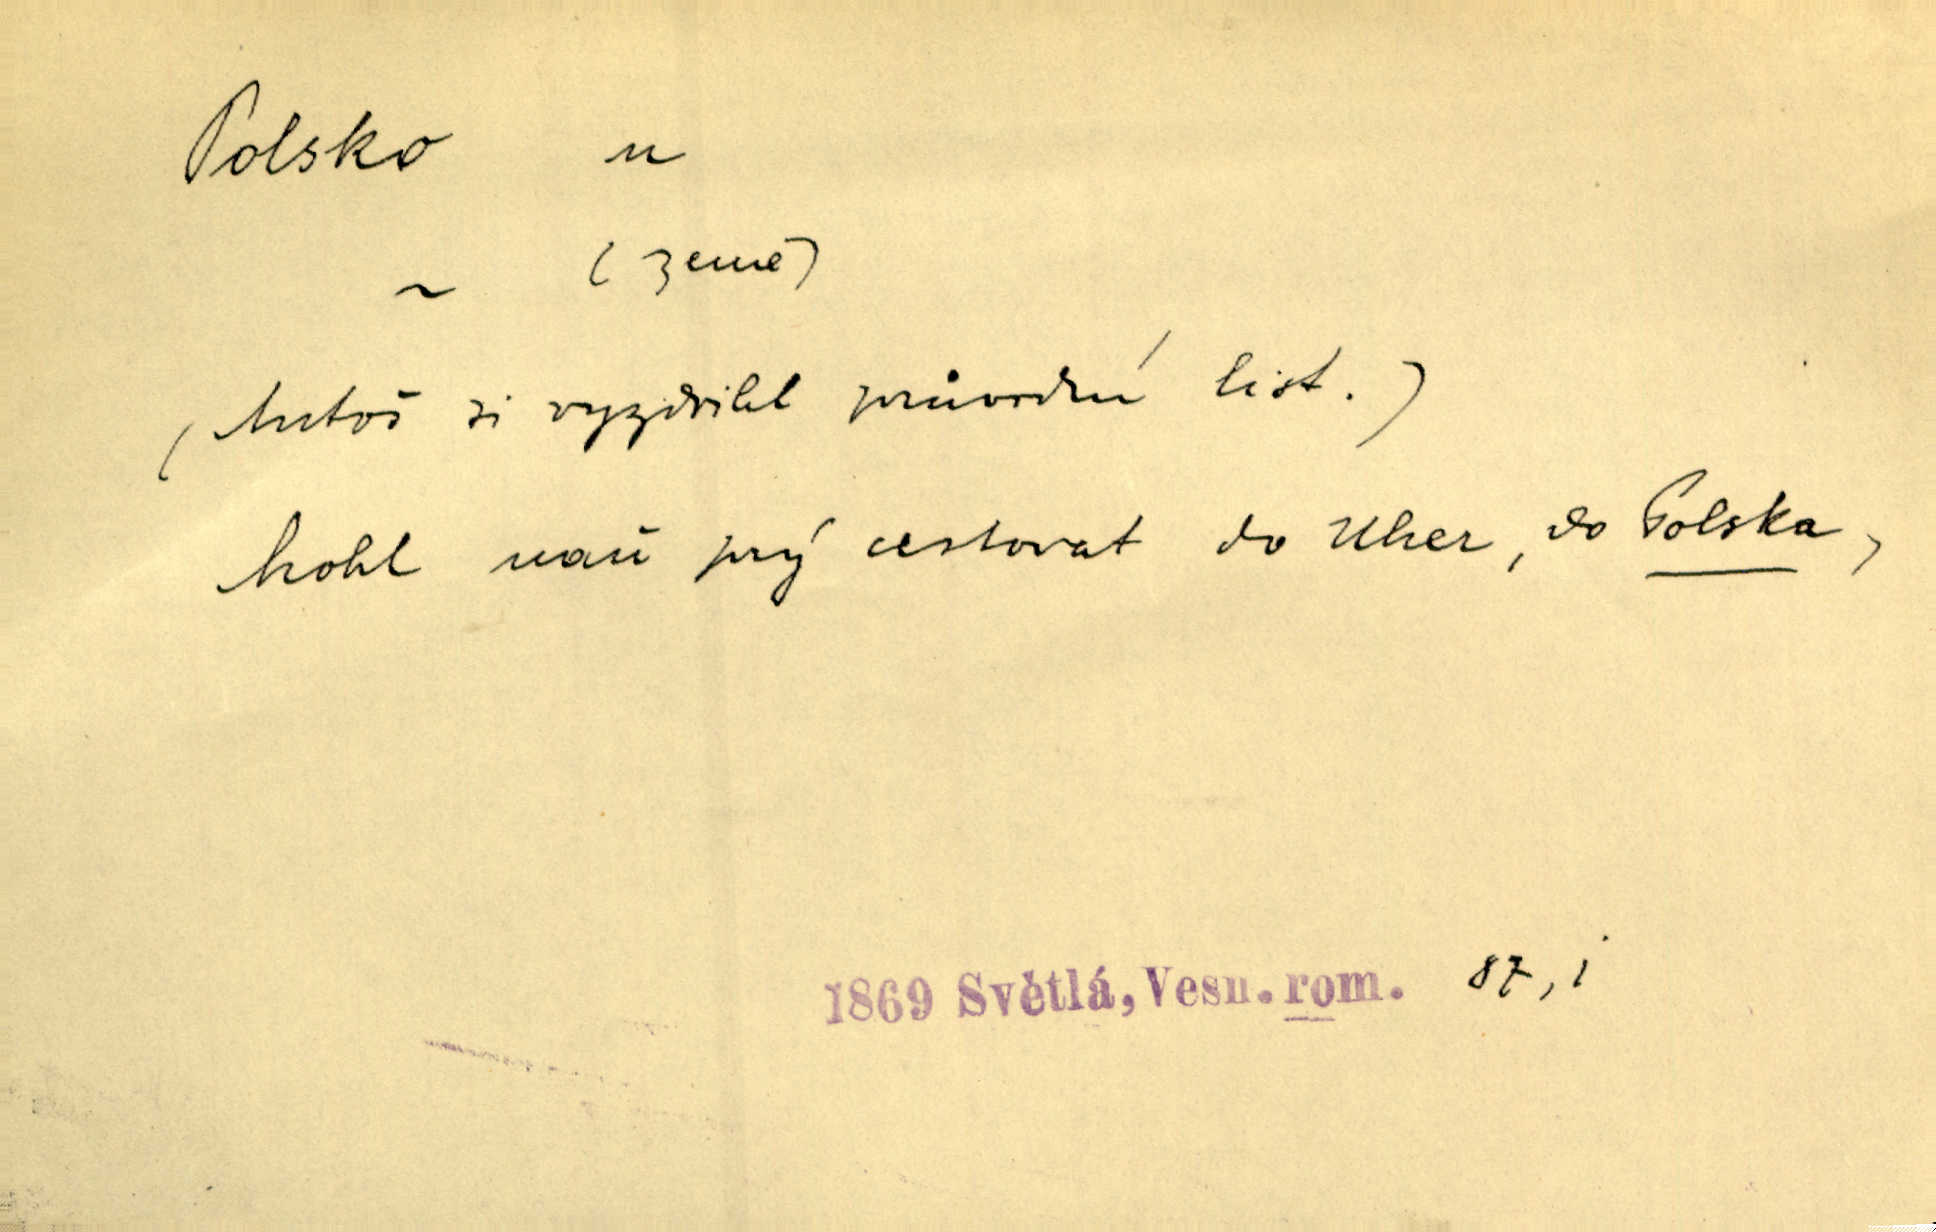 Polsko n
~ (země)
(Antoš si vyzdvihl průvodní list.)
Mohl naň prý cestovat do Uher, do Polska,
1869 Světlá, Vesn. rom. 87, i